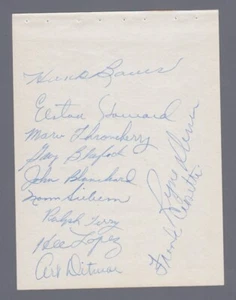 Hank Bauer
Elston Howard
Marv Throneberry
Gary Blaylock
John Blanchard
Norm Siebern
Ralph Terry
Hec Lopez
Art Ditmar
Ryne Duren
Frank